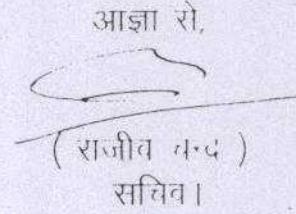 आज्ञा से,
( राजीव चन्द )
सचिव।